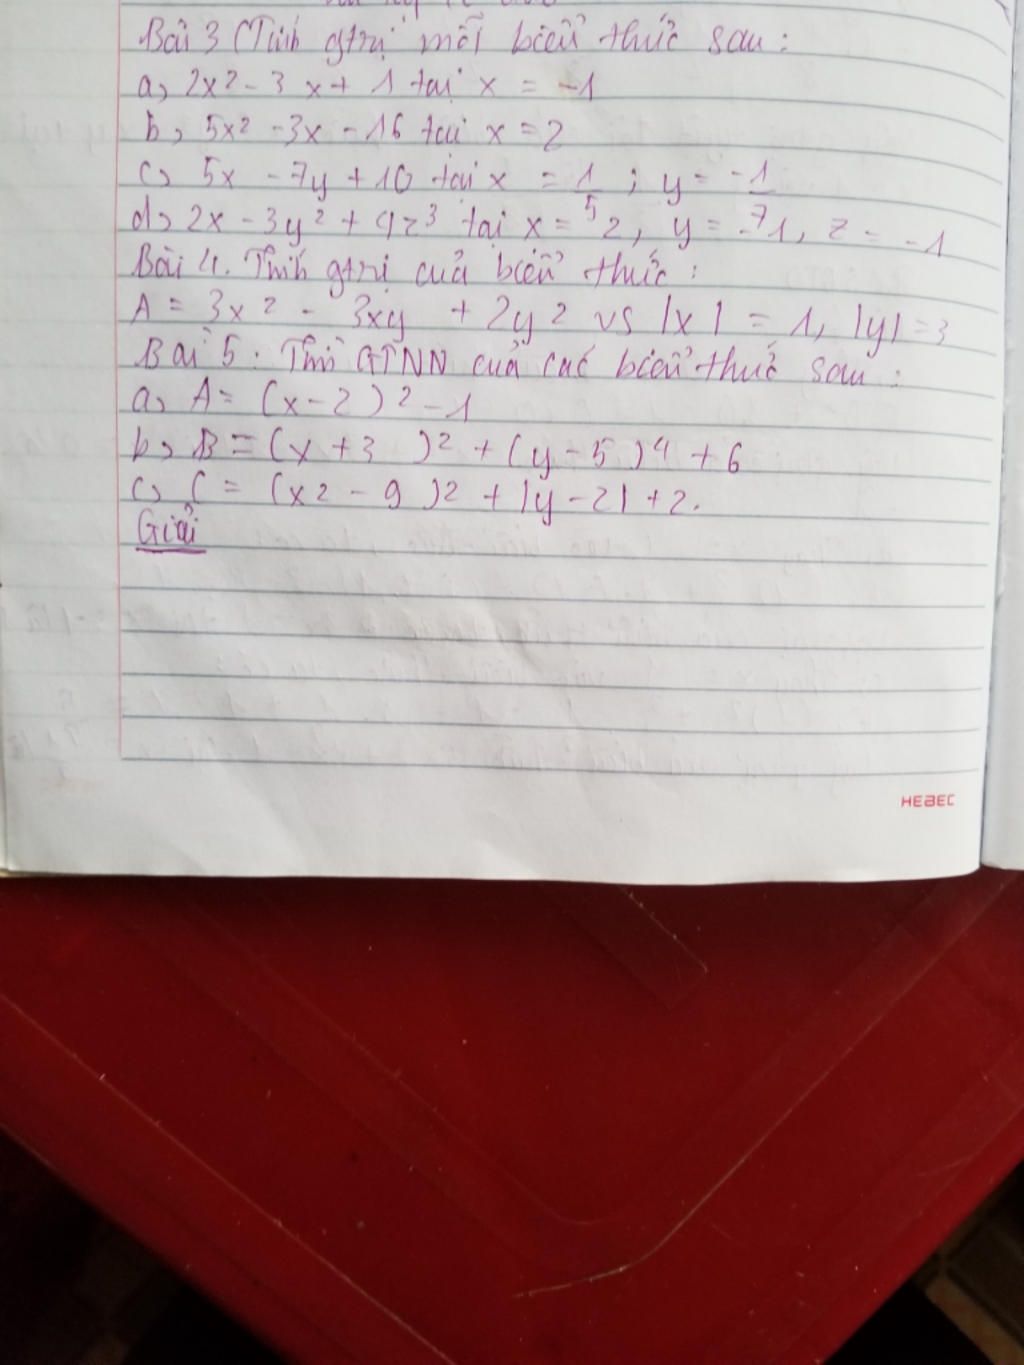 Bài 3 (Tính gtrị mỗi biểu thức sau:
a, 2x2 - 3x + 1 tại x = -1
b, 5x2 - 3x - 16 tại x = 2
c, 5x - 7y + 10 tại x = 1/5 ; y = -1/7
d, 2x - 3y2 + 4z3 tại x = 2, y = -1, z = -1
Bài 4. Tính gtrị của biểu thức:
A = 3x2 - 3xy + 2y2 vs |x| = 1, |y| = 3
Bài 5. Tìm GTNN của các biểu thức sau:
a, A = (x-2)2 - 1
b, B = (x+3)2 + (y-5)4 + 6
c, C = (x2 - 9)2 + |y-2| + 2.
Giải
HEBEC